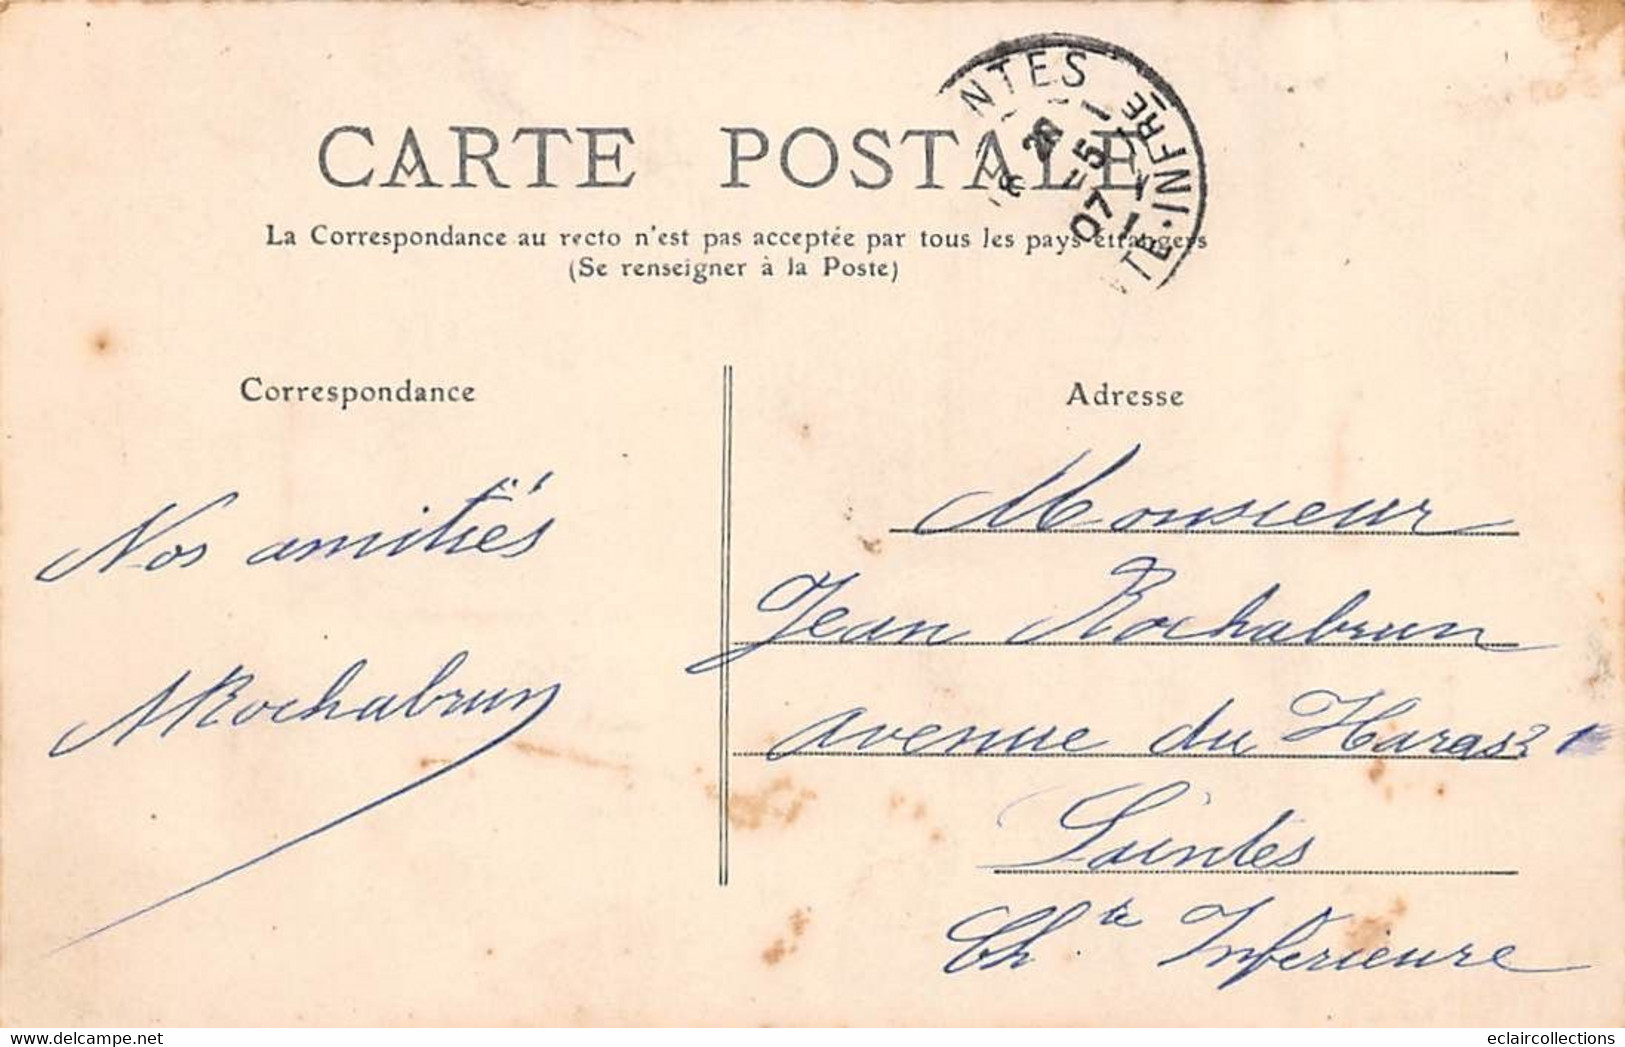 CARTE POSTALE
La Correspondance au recto n'est pas acceptée par tous les pays étrangers
(Se renseigner à la Poste)
NTES
20
5
07
TE-INFRE
Correspondance
Adresse
Nos amitiés
ARochabrun
Monsieur
Jean Rochabrun
avenue du Haras 21
Saintes
Chte Inférieure
eclaircollections